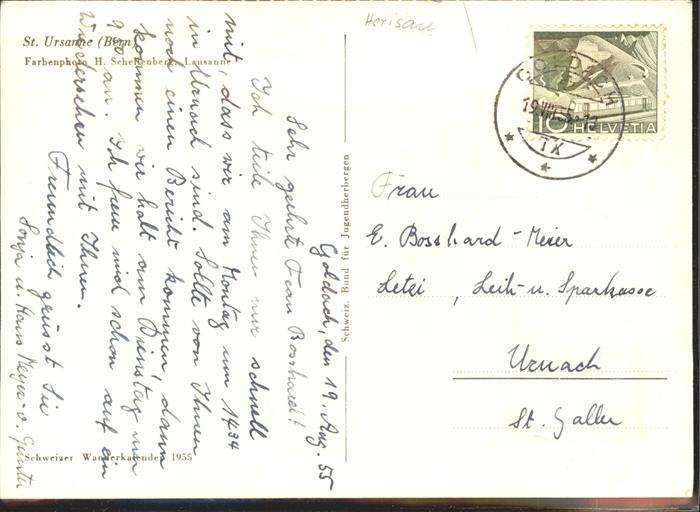 St. Ursanne (Bern)
Farbenphoto H. Schellenberg, Lausanne
Goldach, den 19. Aug. 55
Sehr geehrte Frau Bosshardt!
Ich teile Ihnen nur schnell
mit, dass wir am Montag um 14 34
in Uznach sind. Sollte von Ihnen
noch einen Bericht kommen, dann
kommen wir halt am Dienstag um
an. Ich freue mich schon auf ein
Wiedersehen mit Ihnen.
Freundlich grüsst Sie
Sonja u. Hans Meyer-v.
Schweizer Wanderkalender 1955
Schweiz. Bund für Jugendherbergen
Herisau
GOLDACH
HELVETIA
10
Frau
E. Bosshard-Meier
Letzi, Leih-u. Sparkasse
Uznach
St. Gallen